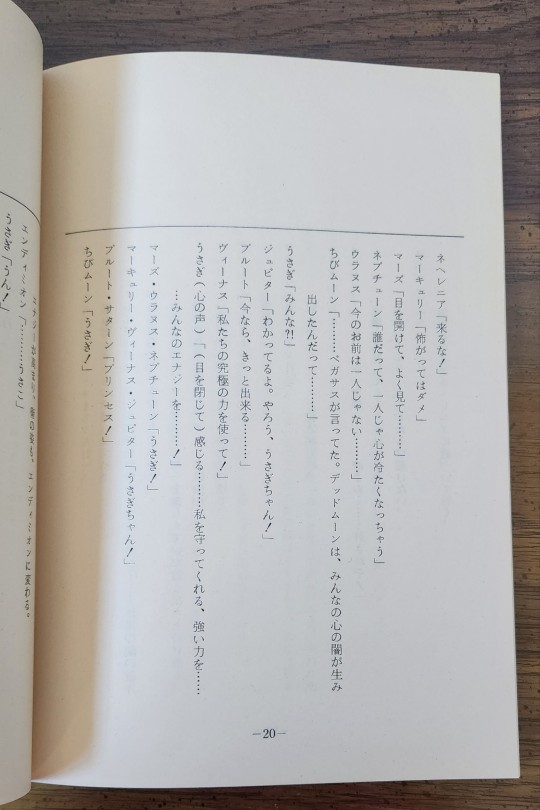 ネヘレニア「来るな！」
マーキュリー「怖がってはダメ」
マーズ「目を開けて、よく見て………」
ネプチューン「誰だって、一人じゃ心が冷たくなっちゃう」
ウラヌス「今のお前は一人じゃない………」
ちびムーン「………ペガサスが言ってた。デッドムーンは、みんなの心の闇が生み
出したんだって………」
うさぎ「みんな?!」
ジュピター「わかってるよ。やろう、うさぎちゃん！」
プルート「今なら、きっと出来る………」
ヴィーナス「私たちの究極の力を使って！」
うさぎ（心の声）「（目を閉じて）感じる………私を守ってくれる、強い力を……
…みんなのエナジーを………！」
マーズ・ウラヌス・ネプチューン「うさぎ！」
マーキュリー・ヴィーナス・ジュピター「うさぎちゃん！」
プルート・サターン「プリンセス！」
ちびムーン「うさぎ！」
—20—
エナジーが高まり、衛の姿も、エンディミオンに変わる。
エンディミオン「………うさこ」
うさぎ「うん！」